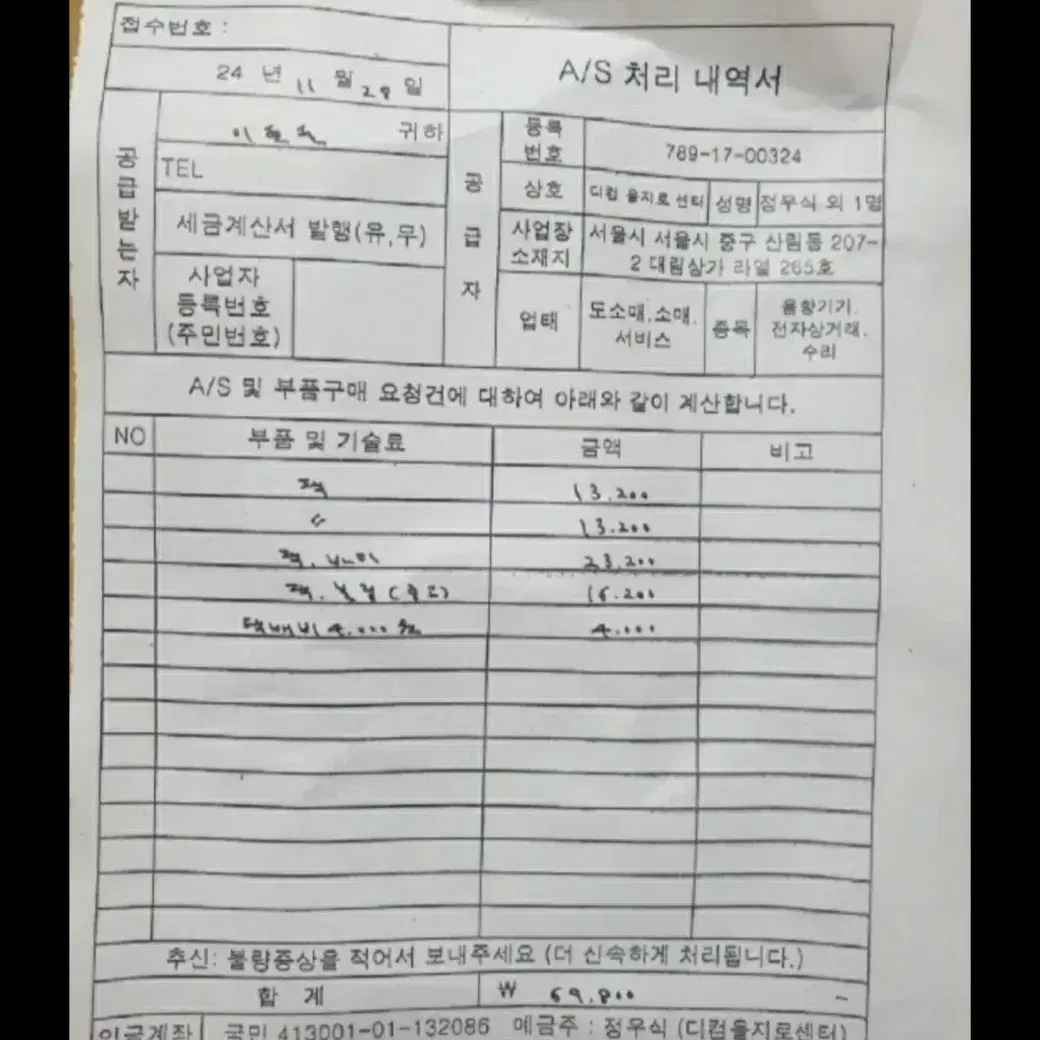 접수번호 :
24 년 11 월 28 일
A/S 처리 내역서
공급받는자
귀하
TEL
세금계산서 발행(유,무)
사업자
등록번호
(주민번호)
공급자
등록
번호
789-17-00324
상호
디컴 을지로 센터
성명
정우식 외 1명
사업장
소재지
서울시 서울시 중구 산림동 207-
2 대림상가 라열 265호
업태
도소매,소매,
서비스
종목
음향기기.
전자상거래.
수리
A/S 및 부품구매 요청건에 대하여 아래와 같이 계산합니다.
NO 부품 및 기술료 금액 비고
잭 13.200
〃 13.200
잭. 23.200
잭. 볼륨 16.200
택배비 4.000원 4.000
추신: 불량증상을 적어서 보내주세요 (더 신속하게 처리됩니다.)
합 계 ₩ 69.800 -
입금계좌 국민 413001-01-132086 예금주 : 정우식 (디컴을지로센터)